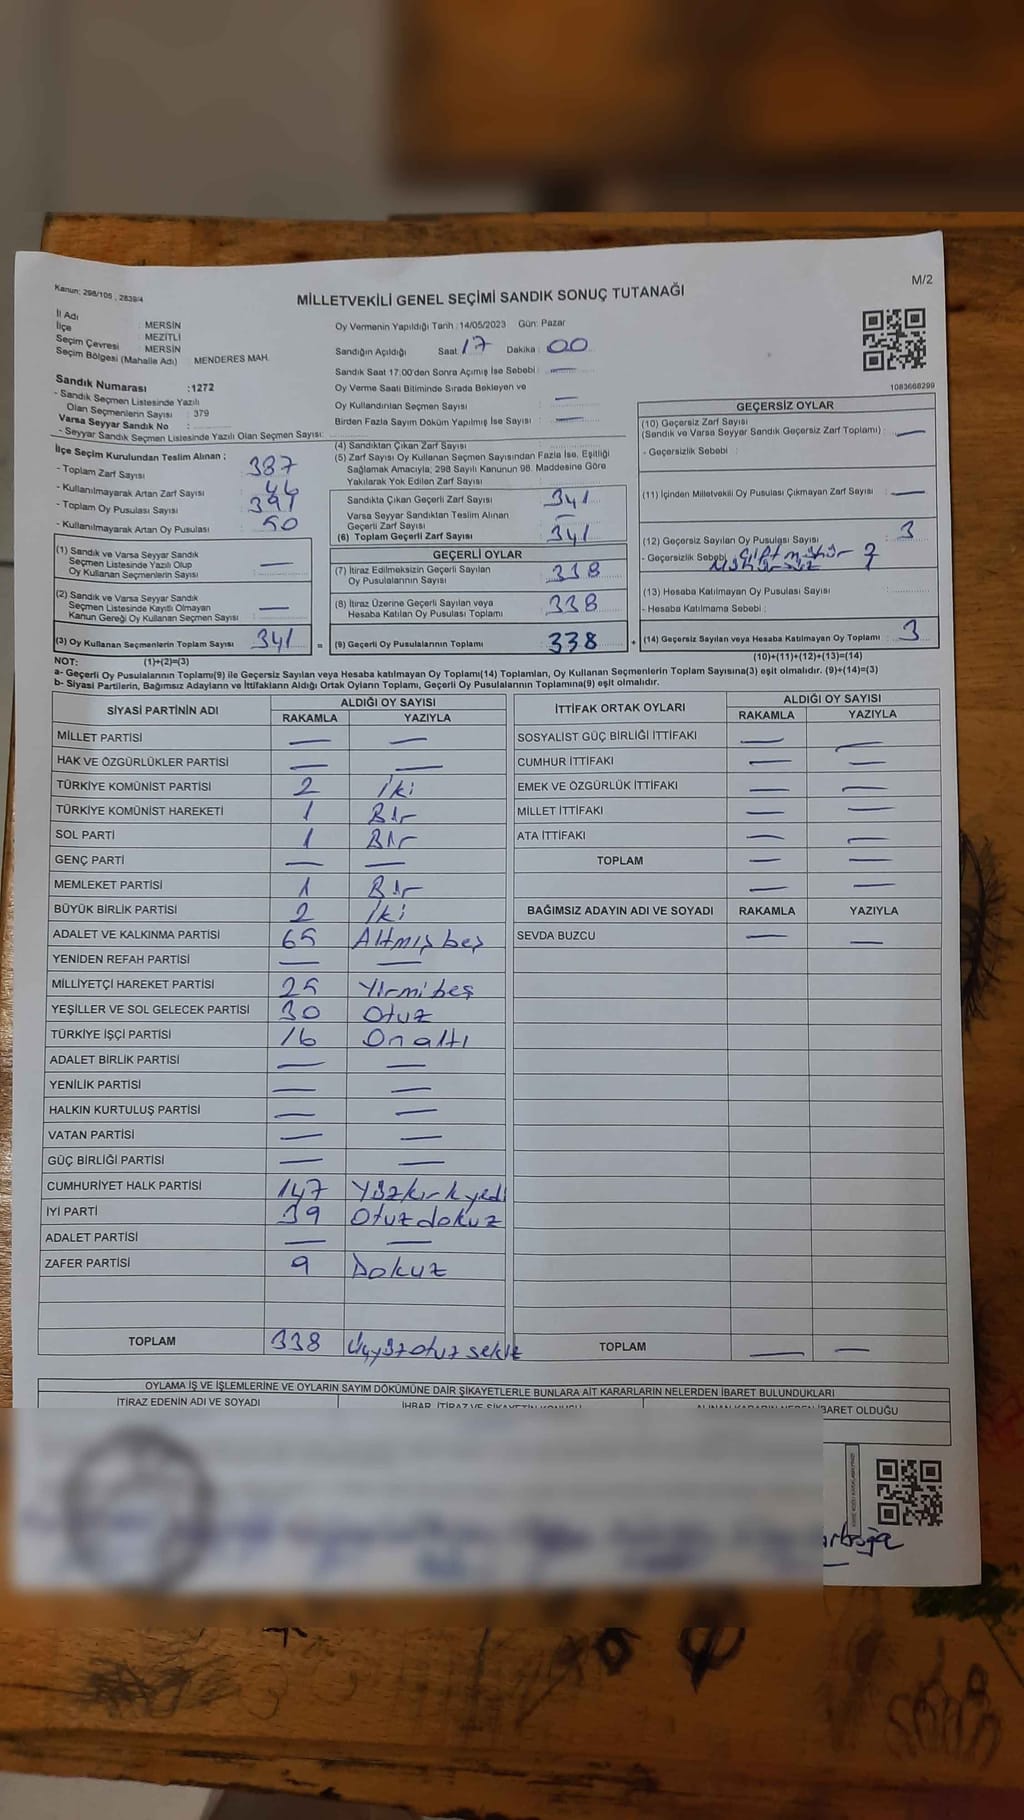 Kanun: 298/105 , 2839/4
M/2
MİLLETVEKİLİ GENEL SEÇİMİ SANDIK SONUÇ TUTANAĞI
İl Adı : MERSİN
İlçe : MEZİTLİ
Seçim Çevresi : MERSİN
Seçim Bölgesi (Mahalle Adı) : MENDERES MAH.
Oy Vermenin Yapıldığı Tarih :14/05/2023 Gün: Pazar
Sandığın Açıldığı Saat 17 Dakika : 00
Sandık Saat 17:00'den Sonra Açmış İse Sebebi : —
Oy Verme Saati Bitiminde Sırada Bekleyen ve
Oy Kullandırılan Seçmen Sayısı : —
Birden Fazla Sayım Döküm Yapılmış İse Sayısı : —
1083668299
Sandık Numarası :1272
- Sandık Seçmen Listesinde Yazılı
Olan Seçmenlerin Sayısı : 379
Varsa Seyyar Sandık No :
- Seyyar Sandık Seçmen Listesinde Yazılı Olan Seçmen Sayısı:
İlçe Seçim Kurulundan Teslim Alınan :
- Toplam Zarf Sayısı 387
- Kullanılmayarak Artan Zarf Sayısı 46
- Toplam Oy Pusulası Sayısı 391
- Kullanılmayarak Artan Oy Pusulası 50
(1) Sandık ve Varsa Seyyar Sandık
Seçmen Listesinde Yazılı Olup
Oy Kullanan Seçmenlerin Sayısı —
(2) Sandık ve Varsa Seyyar Sandık
Seçmen Listesinde Kayıtlı Olmayan
Kanun Gereği Oy Kullanan Seçmen Sayısı —
(3) Oy Kullanan Seçmenlerin Toplam Sayısı 341 =
(1)+(2)=(3)
(4) Sandıktan Çıkan Zarf Sayısı
(5) Zarf Sayısı Oy Kullanan Seçmen Sayısından Fazla İse, Eşitliği
Sağlamak Amacıyla; 298 Sayılı Kanunun 98. Maddesine Göre
Yakılarak Yok Edilen Zarf Sayısı :
Sandıkta Çıkan Geçerli Zarf Sayısı 341
Varsa Seyyar Sandıktan Teslim Alınan
Geçerli Zarf Sayısı —
(6) Toplam Geçerli Zarf Sayısı 341
GEÇERLİ OYLAR
(7) İtiraz Edilmeksizin Geçerli Sayılan
Oy Pusulalarının Sayısı 338
(8) İtiraz Üzerine Geçerli Sayılan veya
Hesaba Katılan Oy Pusulası Toplamı 338
(9) Geçerli Oy Pusulalarının Toplamı 338 +
GEÇERSİZ OYLAR
(10) Geçersiz Zarf Sayısı
(Sandık ve Varsa Seyyar Sandık Geçersiz Zarf Toplamı) : —
- Geçersizlik Sebebi :
(11) İçinden Milletvekili Oy Pusulası Çıkmayan Zarf Sayısı : —
(12) Geçersiz Sayılan Oy Pusulası Sayısı 3
- Geçersizlik Sebebi
(13) Hesaba Katılmayan Oy Pusulası Sayısı
- Hesaba Katılmama Sebebi :
(14) Geçersiz Sayılan veya Hesaba Katılmayan Oy Toplamı 3
(10)+(11)+(12)+(13)=(14)
NOT:
a- Geçerli Oy Pusulalarının Toplamı(9) ile Geçersiz Sayılan veya Hesaba katılmayan Oy Toplamı(14) Toplamları, Oy Kullanan Seçmenlerin Toplam Sayısına(3) eşit olmalıdır. (9)+(14)=(3)
b- Siyasi Partilerin, Bağımsız Adayların ve İttifakların Aldığı Ortak Oyların Toplamı, Geçerli Oy Pusulalarının Toplamına(9) eşit olmalıdır.
SİYASİ PARTİNİN ADI ALDIĞI OY SAYISI
RAKAMLA YAZIYLA
MİLLET PARTİSİ — —
HAK VE ÖZGÜRLÜKLER PARTİSİ — —
TÜRKİYE KOMÜNİST PARTİSİ 2 iki
TÜRKİYE KOMÜNİST HAREKETİ 1 Bir
SOL PARTİ 1 Bir
GENÇ PARTİ — —
MEMLEKET PARTİSİ 1 Bir
BÜYÜK BİRLİK PARTİSİ 2 iki
ADALET VE KALKINMA PARTİSİ 65 Altmış beş
YENİDEN REFAH PARTİSİ — —
MİLLİYETÇİ HAREKET PARTİSİ 25 Yirmi beş
YEŞİLLER VE SOL GELECEK PARTİSİ 30 Otuz
TÜRKİYE İŞÇİ PARTİSİ 16 On altı
ADALET BİRLİK PARTİSİ — —
YENİLİK PARTİSİ — —
HALKIN KURTULUŞ PARTİSİ — —
VATAN PARTİSİ — —
GÜÇ BİRLİĞİ PARTİSİ — —
CUMHURİYET HALK PARTİSİ 147 Yüzkırk yedi
İYİ PARTİ 39 Otuz dokuz
ADALET PARTİSİ — —
ZAFER PARTİSİ 9 Dokuz
TOPLAM 338 Üçyüzotuz sekiz
İTTİFAK ORTAK OYLARI ALDIĞI OY SAYISI
RAKAMLA YAZIYLA
SOSYALİST GÜÇ BİRLİĞİ İTTİFAKI — —
CUMHUR İTTİFAKI — —
EMEK VE ÖZGÜRLÜK İTTİFAKI — —
MİLLET İTTİFAKI — —
ATA İTTİFAKI — —
TOPLAM — —
— —
BAĞIMSIZ ADAYIN ADI VE SOYADI RAKAMLA YAZIYLA
SEVDA BUZCU — —
TOPLAM — —
OYLAMA İŞ VE İŞLEMLERİNE VE OYLARIN SAYIM DÖKÜMÜNE DAİR ŞİKAYETLERLE BUNLARA AİT KARARLARIN NELERDEN İBARET BULUNDUKLARI
İTİRAZ EDENİN ADI VE SOYADI
İBARET OLDUĞU